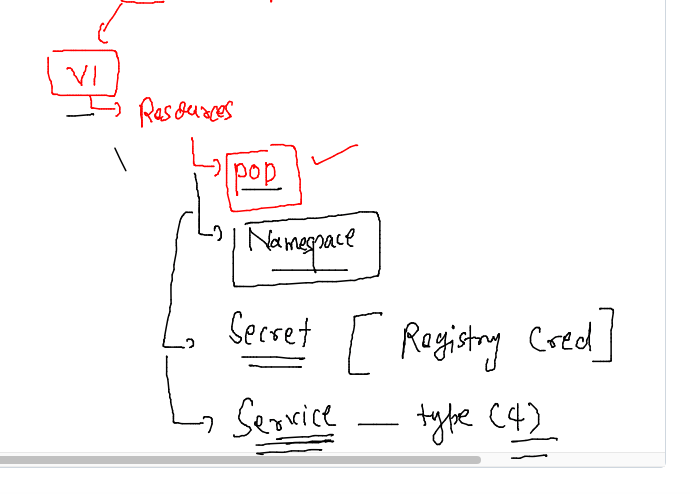 V1
Resources
POD
Namespace
Secret [Registry Cred]
Service — type (4)